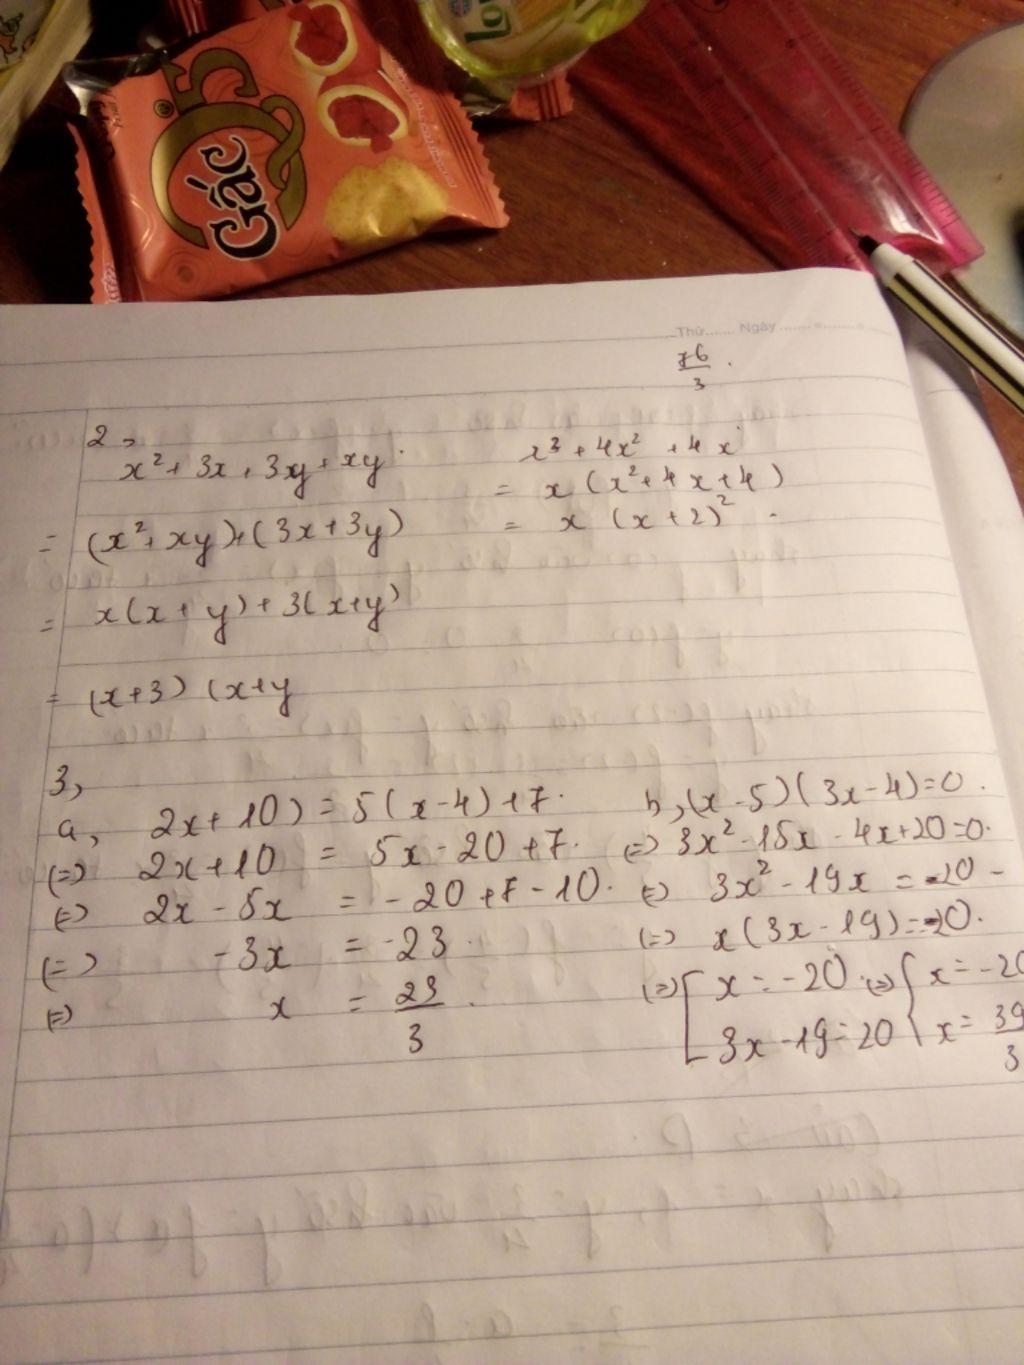 Gấc
Thứ....... Ngày ...............
76/3 .
2,
x² + 3x + 3y + xy
= (x² + xy) + (3x + 3y)
= x(x + y) + 3(x + y)
= (x+3) (x+y
x³ + 4x² + 4x
= x (x² + 4x + 4)
= x (x + 2)² .
3,
a, 2x + 10) = 5(x - 4) + 7.
(=) 2x + 10 = 5x - 20 + 7.
(=) 2x - 5x = - 20 + 7 - 10.
(=) -3x = -23 .
(=) x = 23/3 .
b, (x - 5)(3x - 4) = 0 .
(=) 3x² - 15x - 4x + 20 = 0.
(=) 3x² - 19x = -20 -
(=) x (3x - 19) = -20.
(=) [ x = -20 (=) { x = -20
3x - 19 = 20 x = 39/3